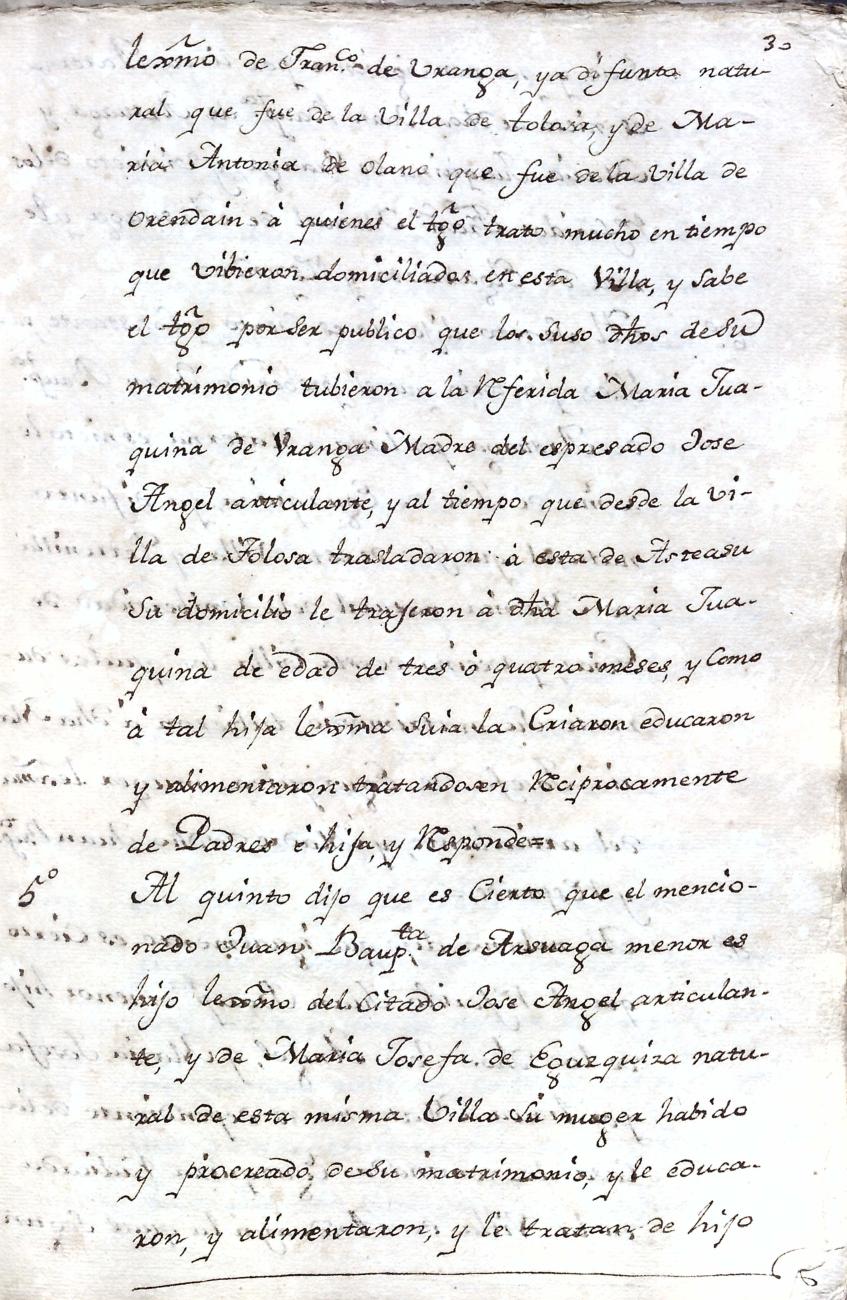 30
lexmo de Franco. de Vranga, ya difunto natu-
ral que fue de la Villa de tolosa, y de Ma-
ria Antonia de olano que fue de la Villa de
Orendain à quienes el tgo trato mucho en tiempo
que vibieron domiciliados en esta Villa, y Sabe
el tgo por Ser publico que los suso dhos de Su
matrimonio tubieron a la Rferida Maria Jua-
quina de Vranga Madre del espresado Jose
Angel articulante, y al tiempo que desde la Vi-
lla de Tolosa trasladaron à esta de Asteasu
Su domicilio le trajeron à dha Maria Jua-
quina de edad de tres ò quatro meses, y Como
à tal hija lexma Suia la Criaron educaron
y alimentaron tratandosen Rciprocamente
de Padres è hija, y Rsponde=
5º Al quinto dijo que es Cierto que el mencio-
nado Juan Baupta. de Arsuaga menor es
hijo lexmo del Citado Jose Angel articulan-
te, y de Maria Josefa de Eguzquiza natu-
ral de esta misma Villa Su muger habido
y procreado de su matrimonio, y le educa-
ron, y alimentaron, y le tratan de hijo